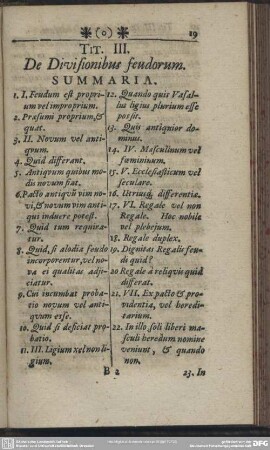 ❋(o)❋ 19
TIT. III.
De Divisionibus feudorum.
SUMMARIA.
1. I. Feudum est proprium vel improprium.
2. Præsumi proprium, & quat.
3. II. Novum vel antiquum.
4. Quid differant.
5. Antiquum quibus modis novum fiat.
6. Pacto antiquū vim novi, & novum vim antiqui induere potest.
7. Quid tum requiratur.
8. Quid, si alodia feudo incorporentur, vel nova ei qualitas adjiciatur.
9. Cui incumbat probatio novum vel antiquum esse.
10. Quid si deficiat probatio.
11. III. Ligium vel non ligium.
12. Quando quis Vasallus ligius plurium esse possit.
13. Quis antiquior dominus.
14. IV. Masculinum vel fœmininum.
15. V. Ecclesiasticum vel seculare.
16. Utriusq; differentiæ.
17. VI. Regale vel non Regale. Hoc nobile vel plebejum.
18. Regale duplex.
19. Dignitas Regalis feudi quid?
20 Regale à reliquis quid differat.
21. VII. Ex pacto & providentia, vel hereditarium.
22. In illo soli liberi masculi heredum nomine veniunt, & quando non.
B 2
23. In